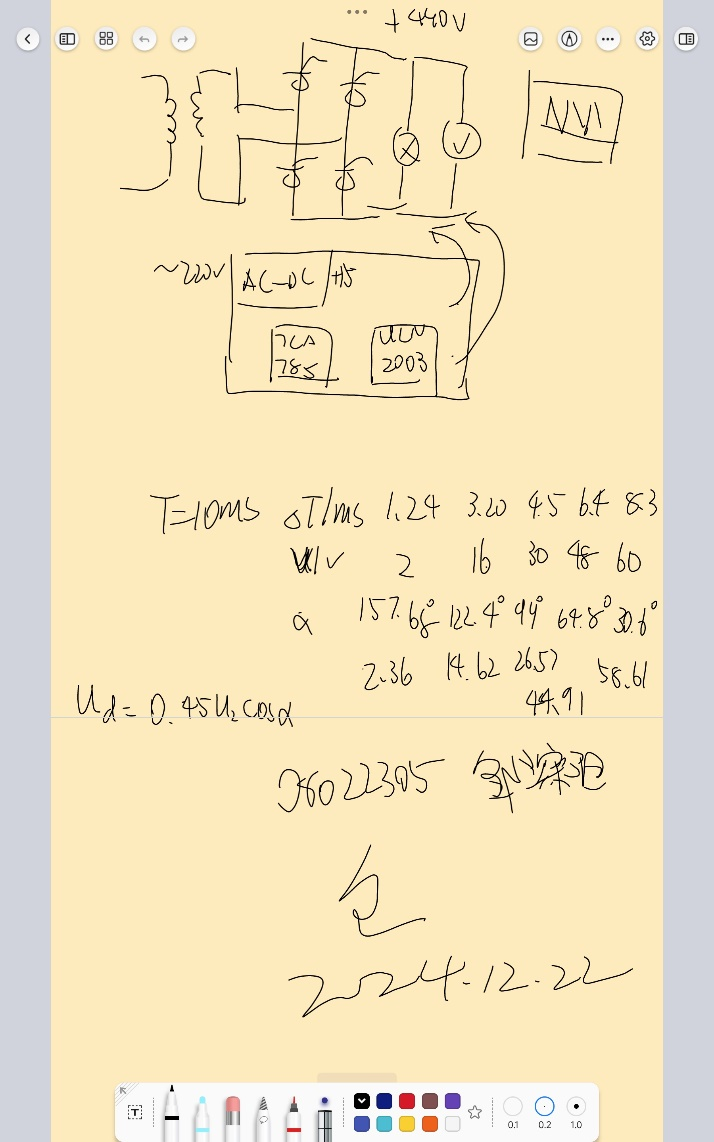 +440V
V
~220V
AC-DC +15
TCA
785
2003
T=10ms ΔT/ms 1.24 3.20 4.5 6.4 8.3
U/V 2 16 30 48 60
α 157.68° 122.4° 99° 64.8° 30.6°
2.36 14.62 26.57 58.61
44.91
Ud = 0.45U₂cosα
06022305
2024.12.22
0.1 0.2 1.0